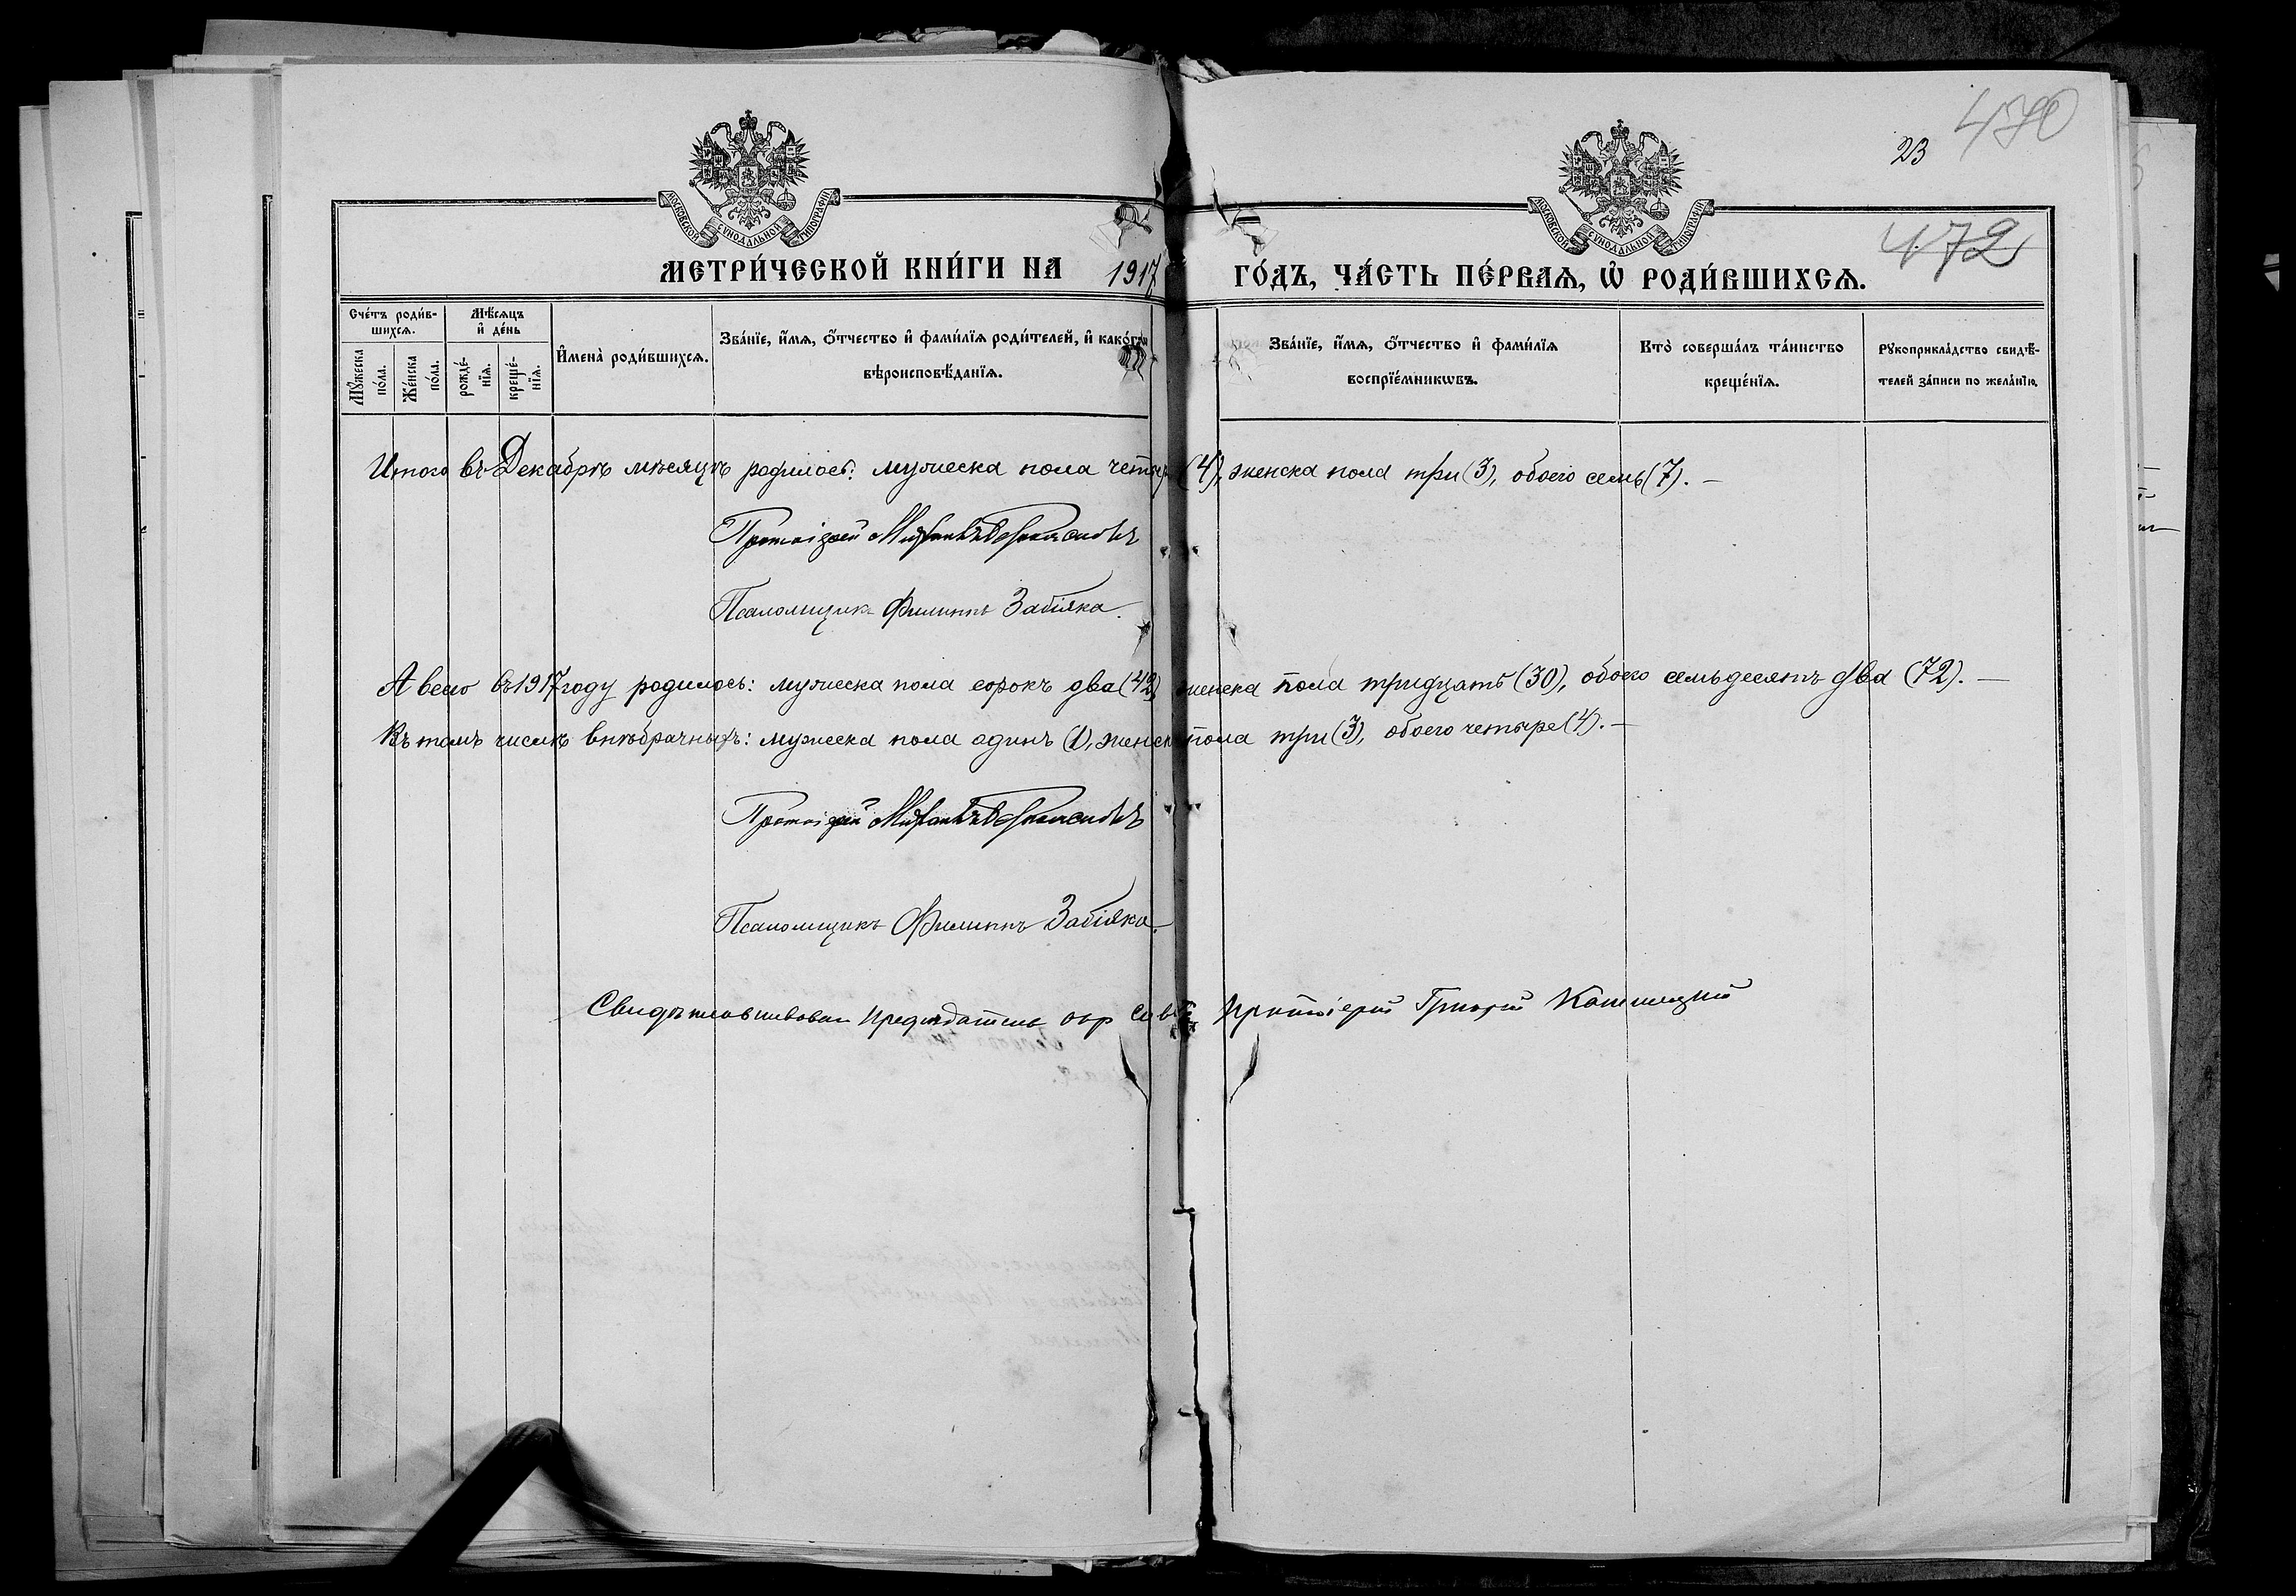 23
470
472
МОСКОВСКОЙ СѴНОДАЛЬНОЙ ТИПОГРАФІИ
МОСКОВСКОЙ СѴНОДАЛЬНОЙ ТИПОГРАФІИ
МЕТРИ́ЧЕСКОЙ КНИ́ГИ НА 1917 ГО́ДЪ, ЧА́СТЬ ПЕ́РВАѦ, Ѡ҆ РОДИ́ВШИХСѦ.
Сче́тъ роди́в-
шихсѧ.
Мꙋ́жеска
по́ла.
Же́нска
по́ла.
Мѣ́сѧцъ
и҆ де́нь
рожде́-
нїѧ.
креще́-
нїѧ.
И҆мена̀ роди́вшихсѧ.
Зва́нїе, и҆́мѧ, ѻ҆́тчество и҆ фами́лїѧ роди́телей, и҆ како́гѡ
вѣроисповѣ́данїѧ.
Зва́нїе, и҆́мѧ, ѻ҆́тчество и҆ фами́лїѧ
воспрїе́мникѡвъ.
Кто̀ соверша́лъ та́инство
креще́нїѧ.
Рꙋкоприкла́дство свидѣ́-
телей за́писи по жела́нїю.
Итого въ Декабрѣ мѣсяцѣ родилось: мужеска пола четыре (4), женска пола три (3), обоего семь (7). —
Протоіерей
Псаломщикъ Филиппъ Забіяка.
А всего въ 1917 году родилось: мужеска пола сорокъ два (42) женска пола тридцать (30), обоего семьдесятъ два (72). —
Въ томъ числѣ внѣбрачныхъ: мужеска пола одинъ (1), женска пола три (3), обоего четыре (4). —
Протоіерей
Псаломщикъ Филиппъ Забіяка.
Свидѣтельствовалъ Предсѣдатель окр Сов Протоіерей Григорій